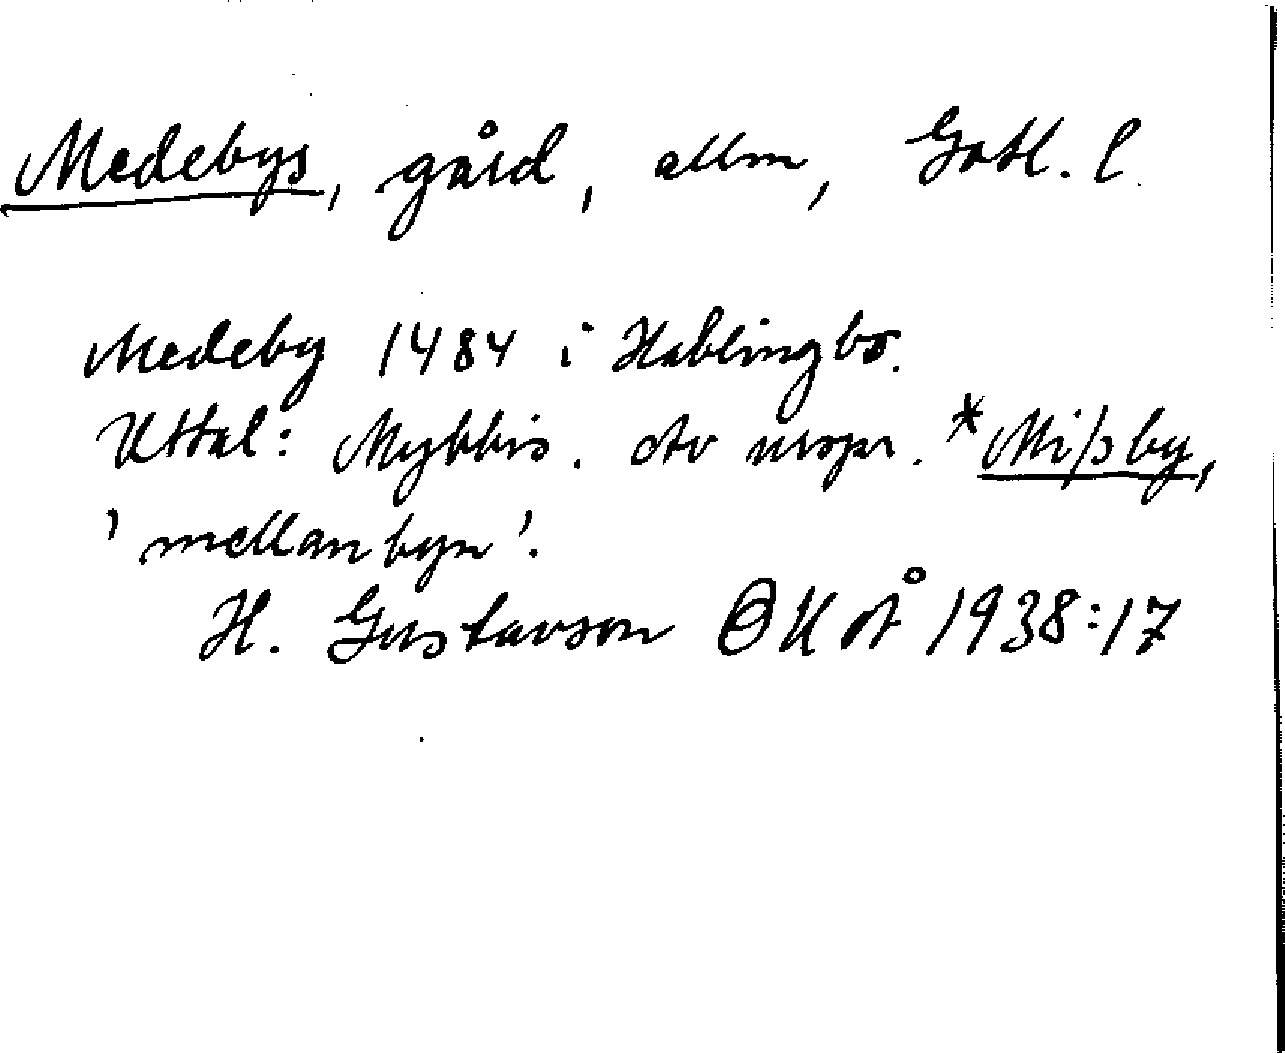 Medebys, gård, allm, Gotl. l.
Medeby 1484 i Hablingbo.
Uttal: Mybbis. Av urspr. *Miþby,
'mellanbyn'.
H. Gustavson OUÅ 1938:17